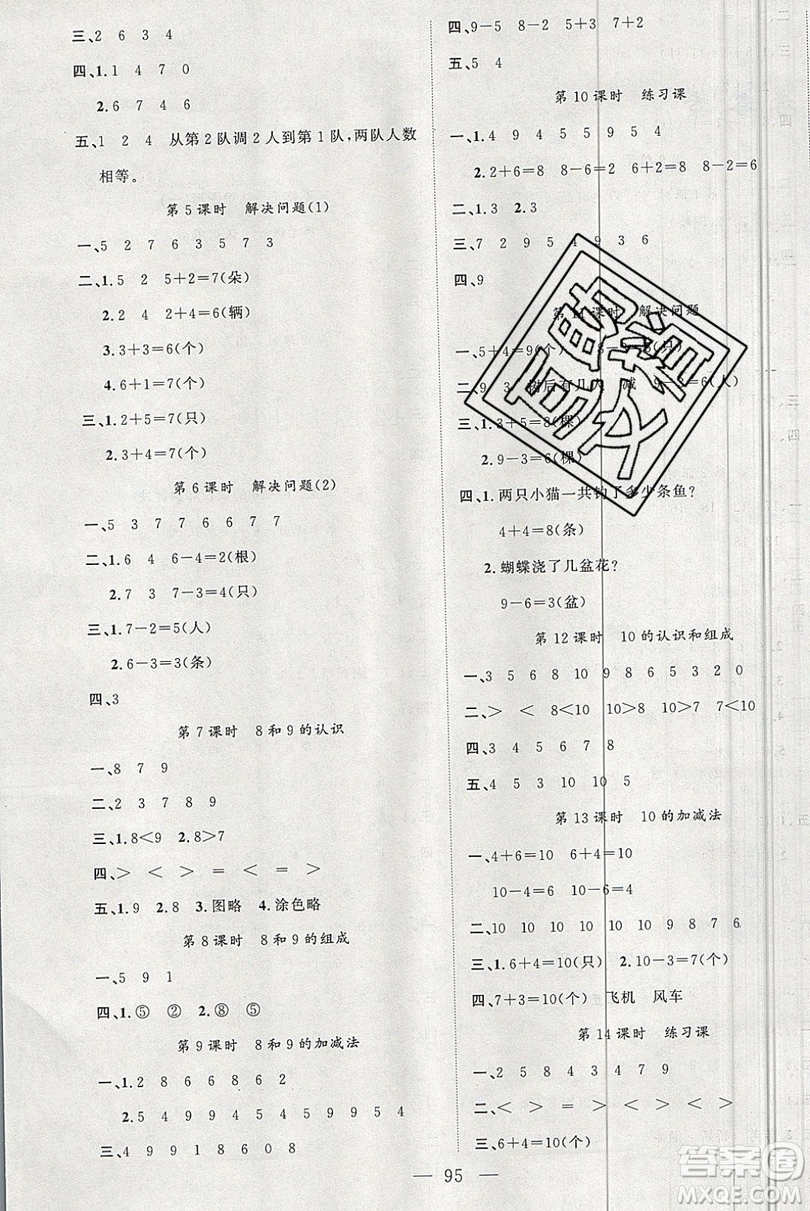 三、2 6 3 4
四、1.1 4 7 0
2.6 7 4 6
五、1 2 4 从第2队调2人到第1队,两队人数
相等。
第5课时 解决问题(1)
一、5 2 7 6 3 5 7 3
二、1.5 2 5+2=7(朵)
2.2 4 2+4=6(辆)
3.3+3=6(个)
4.6+1=7(个)
三、1.2+5=7(只)
2.3+4=7(个)
第6课时 解决问题(2)
一、5 3 7 7 6 6 7 7
二、1.6 4 6-4=2(根)
2.7 3 7-3=4(只)
三、1.7-2=5(人)
2.6-3=3(只)
四、3
第7课时 8和9的认识
一、8 7 9
二、2 3 7 8 9
三、1.8<9 2.8>7
四、> < > = < = >
五、1.9 2.8 3.图略 4.涂色略
第8课时 8和9的组成
一、5 9 1
四、1.⑤ ② 2.⑧ ⑤
第9课时 8和9的加减法
一、1.2 8 6 8 6 2
2.5 4 9 5 4 5 9 9 5 4
三、4 9 9 1 8 6 0 8
四、9-5 8-5 5+3 7+2
五、5 4
第10课时 练习课
一、1.4 9 4 5 5 9 5 4
2.2+6=8 8-6=2 6+2=8 8-2=6
二、1.3 2.3
三、7 2 9 5 4 9 3 6
四、9
第11课时 解决问题
一、5+4=9(个)
二、9 3 树后有几人 减 9-3=6(人)
三、1.3+5=8(棵)
2.9-3=6(棵)
四、1.两只小猫一共钓了多少条鱼?
4+4=8(条)
2.蝴蝶浇了几盆花?
9-6=3(盆)
第12课时 10的认识和组成
一、3 5 6 8 10 9 8 6 5 3 2 0
二、> < 8<10 10>8 10>2 7<10
四、3 4 5 6 7 8
五、4 5 3 10 10 5
第13课时 10的加减法
一、4+6=10 6+4=10
10-4=6 10-6=4
二、10 10 10 10 10 9 8 7 6
三、1.6+4=10(只) 2.10-3=7(个)
四、7+3=10(个) 飞机 风车
第14课时 练习课
一、2 5 8 4 3 4 7 9
二、< > = > < >
三、6+4=10(个)
95
答案圈
MXQE.COM